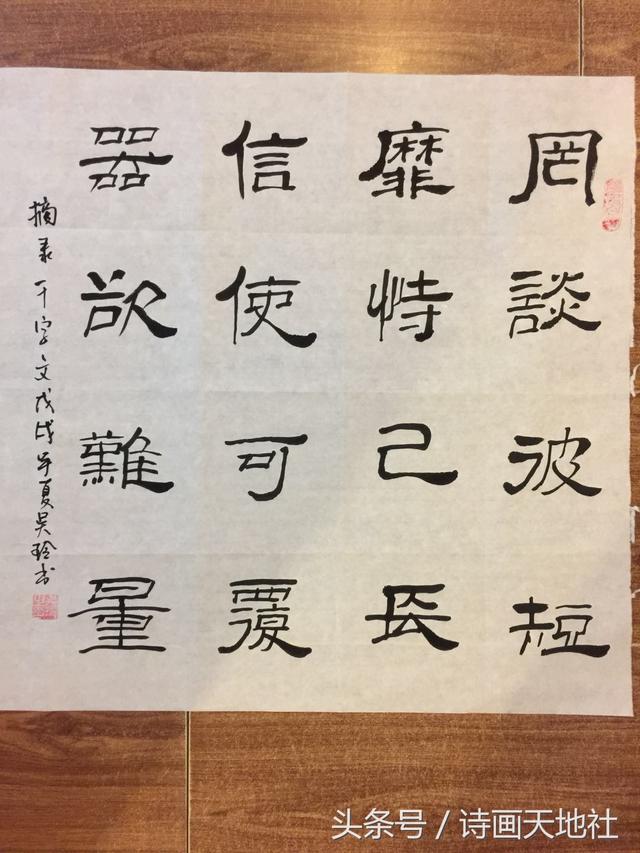 罔談彼短
靡恃己長
信使可覆
器欲難量
摘录千字文戊戌年夏吴玲书
头条号／诗画天地社